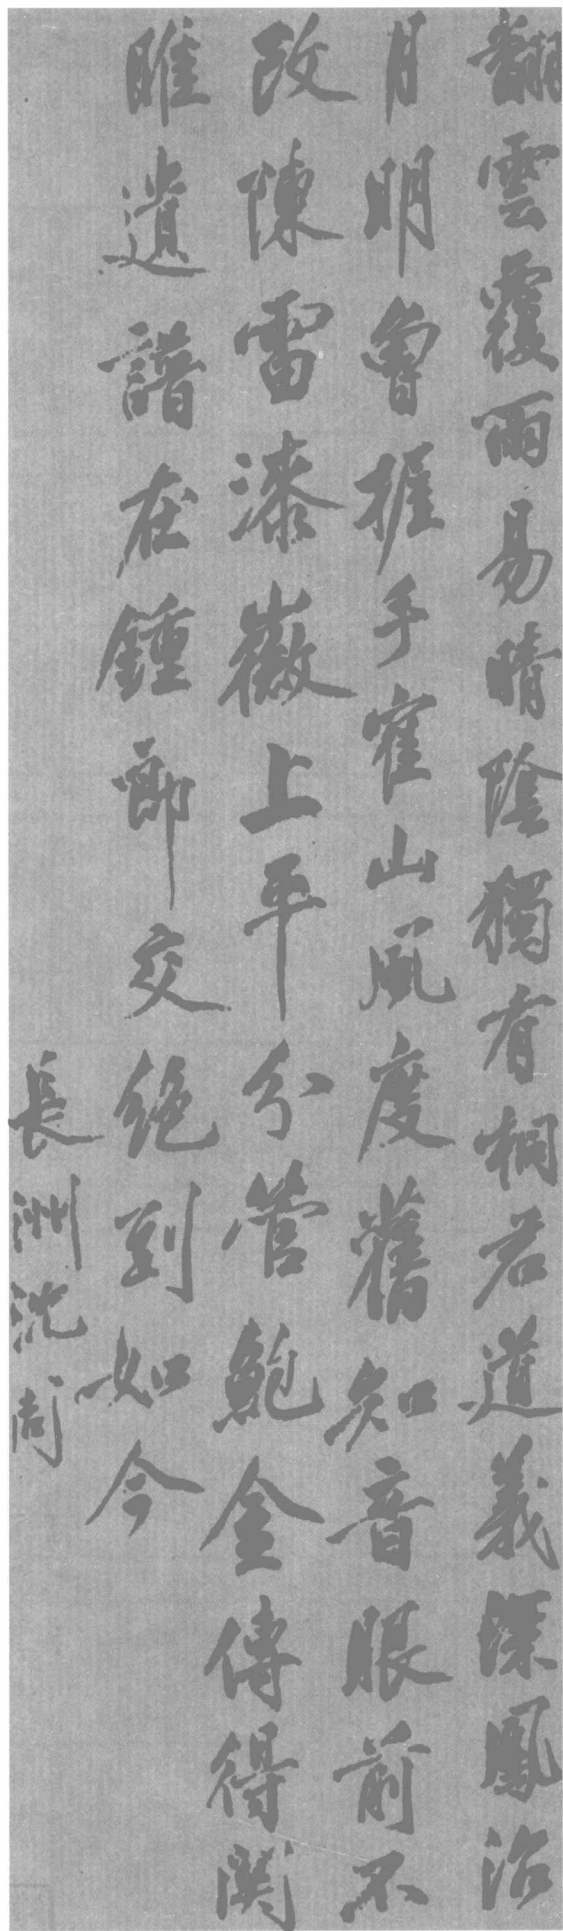 翻雲覆雨易晴陰獨有桐君道義深鳳沼
月明曾握手寉山風度舊知音眼前不
改陳雷漆徽上平分管鮑金傳得關
睢遺譜在鍾郎交絕到如今
長洲沈周